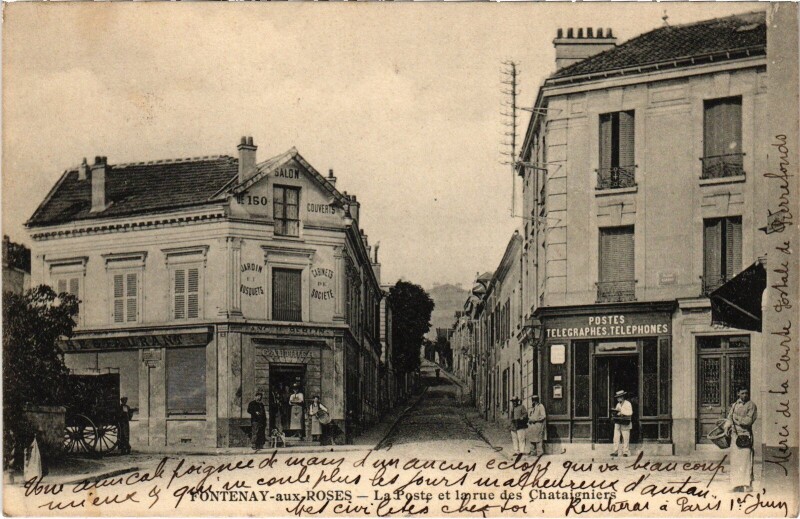 SALON
DE 150 COUVERTS
JARDIN
ET
BOSQUETS
CABINETS
DE
SOCIETE
POSTES
TELEGRAPHES.TELEPHONES
Merci de la carte postale de Pierrefonds
Une amicale poignée de mains d'un ancien cyclope qui va beaucoup
mieux & qui ne coule plus les jours malheureux d'antan,
FONTENAY-aux-ROSES — La Poste et la rue des Chataigniers
Mes civilités chez toi. à Paris 1er Juin